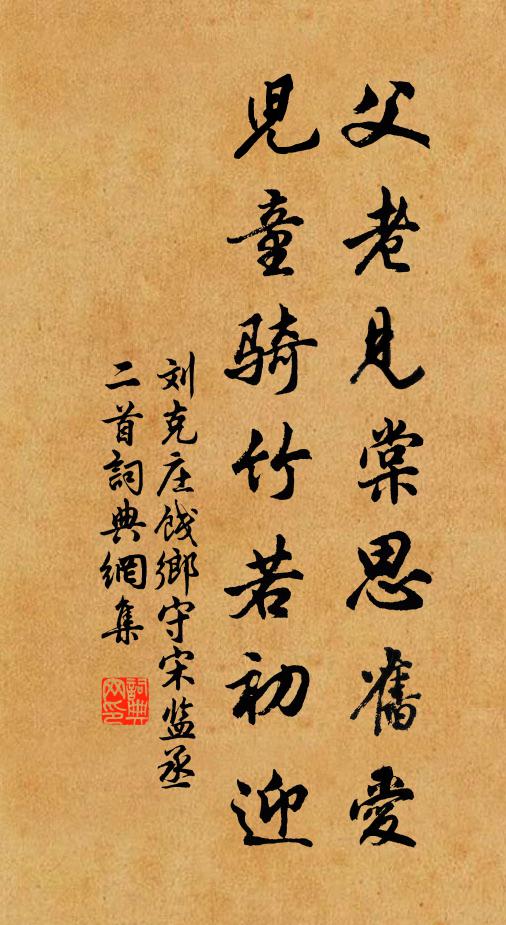 父老見棠思舊愛
兒童騎竹若初迎
刘克庄饯鄉守宋监丞
二首詞典網集
詞典
网印